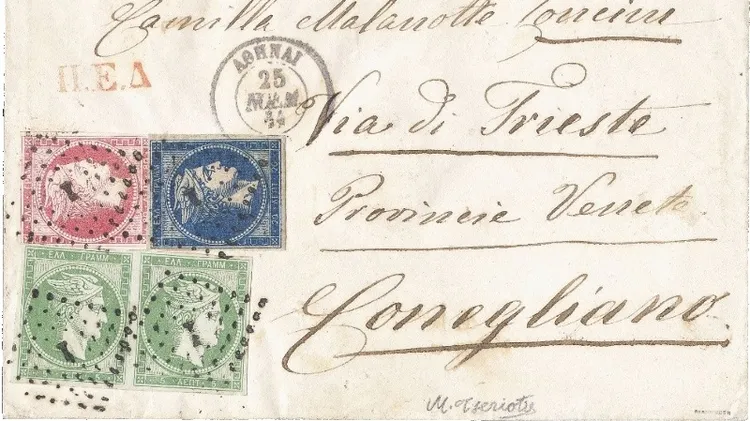 Camilla Malanotte Concini
Π.Ε.Δ
ΑΘΗΝΑΙ
25
ΝΟΕΜ
Via di Trieste
Provincie Venete
Conegliano
ΕΛΛ ΓΡΑΜΜ
ΕΛΛ ΓΡΑΜΜ
5 ΛΕΠΤ
1
1
1
1
M. Tseriotis